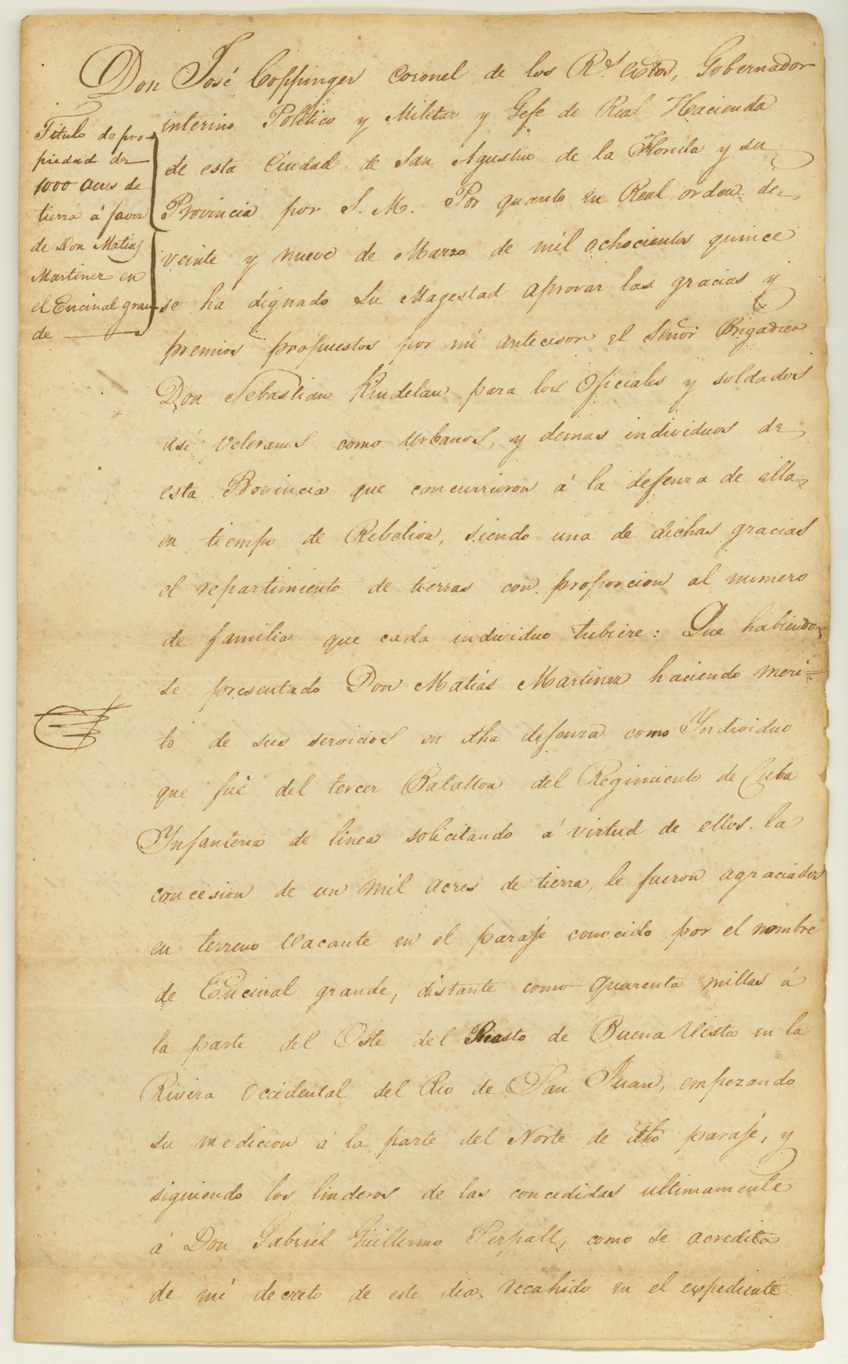 Don José Coppinger Coronel de los Rs. Extos, Gobernador
interino Politico y Militar y Gefe de Real Hacienda
de esta Ciudad de San Agustin de la Florida y su
Provincia por S. M. Por quanto en Real orden de
veinte y nueve de Marzo de mil ochocientos quince
se ha dignado Su Magestad aprovar las gracias y
premios propuestos por mi antecesor el Señor Brigadier
Don Sebastian Kindelan para los Oficiales y soldados
asi veteranos como Urbanos, y demas individuos de
esta Provincia que concurrieron á la defensa de ella
en tiempo de Rebelion, siendo una de dichas gracias
el repartimiento de tierras con proporcion al numero
de familia que cada individuo tubiere: Que habiendo
se presentado Don Matias Martinez haciendo meri-
to de sus servicios en dha defensa como Individuo
que fué del tercer Batallon del Regimiento de Cuba
Infanteria de linea solicitando á virtud de ellos la
concesion de un mil acres de tierra, le fueron agraciados
en terreno vacante en el paraje conocido por el nombre
de Encinal grande, distante como quarenta millas á
la parte del Oste del Puesto de Buena Vista en la
Rivera occidental del Rio de San Juan, empezando
su medicion a la parte del Norte de dho paraje, y
siguiendo los linderos de las concedidas ultimamente
á Don Gabriel Guillermo Perpall, como se acredita
de mi decreto de este dia recahido en el expediente
Titulo de pro-
piedad de
1000 acres de
tierra á favor
de Don Matias
Martinez en
el Encinal gran-
de